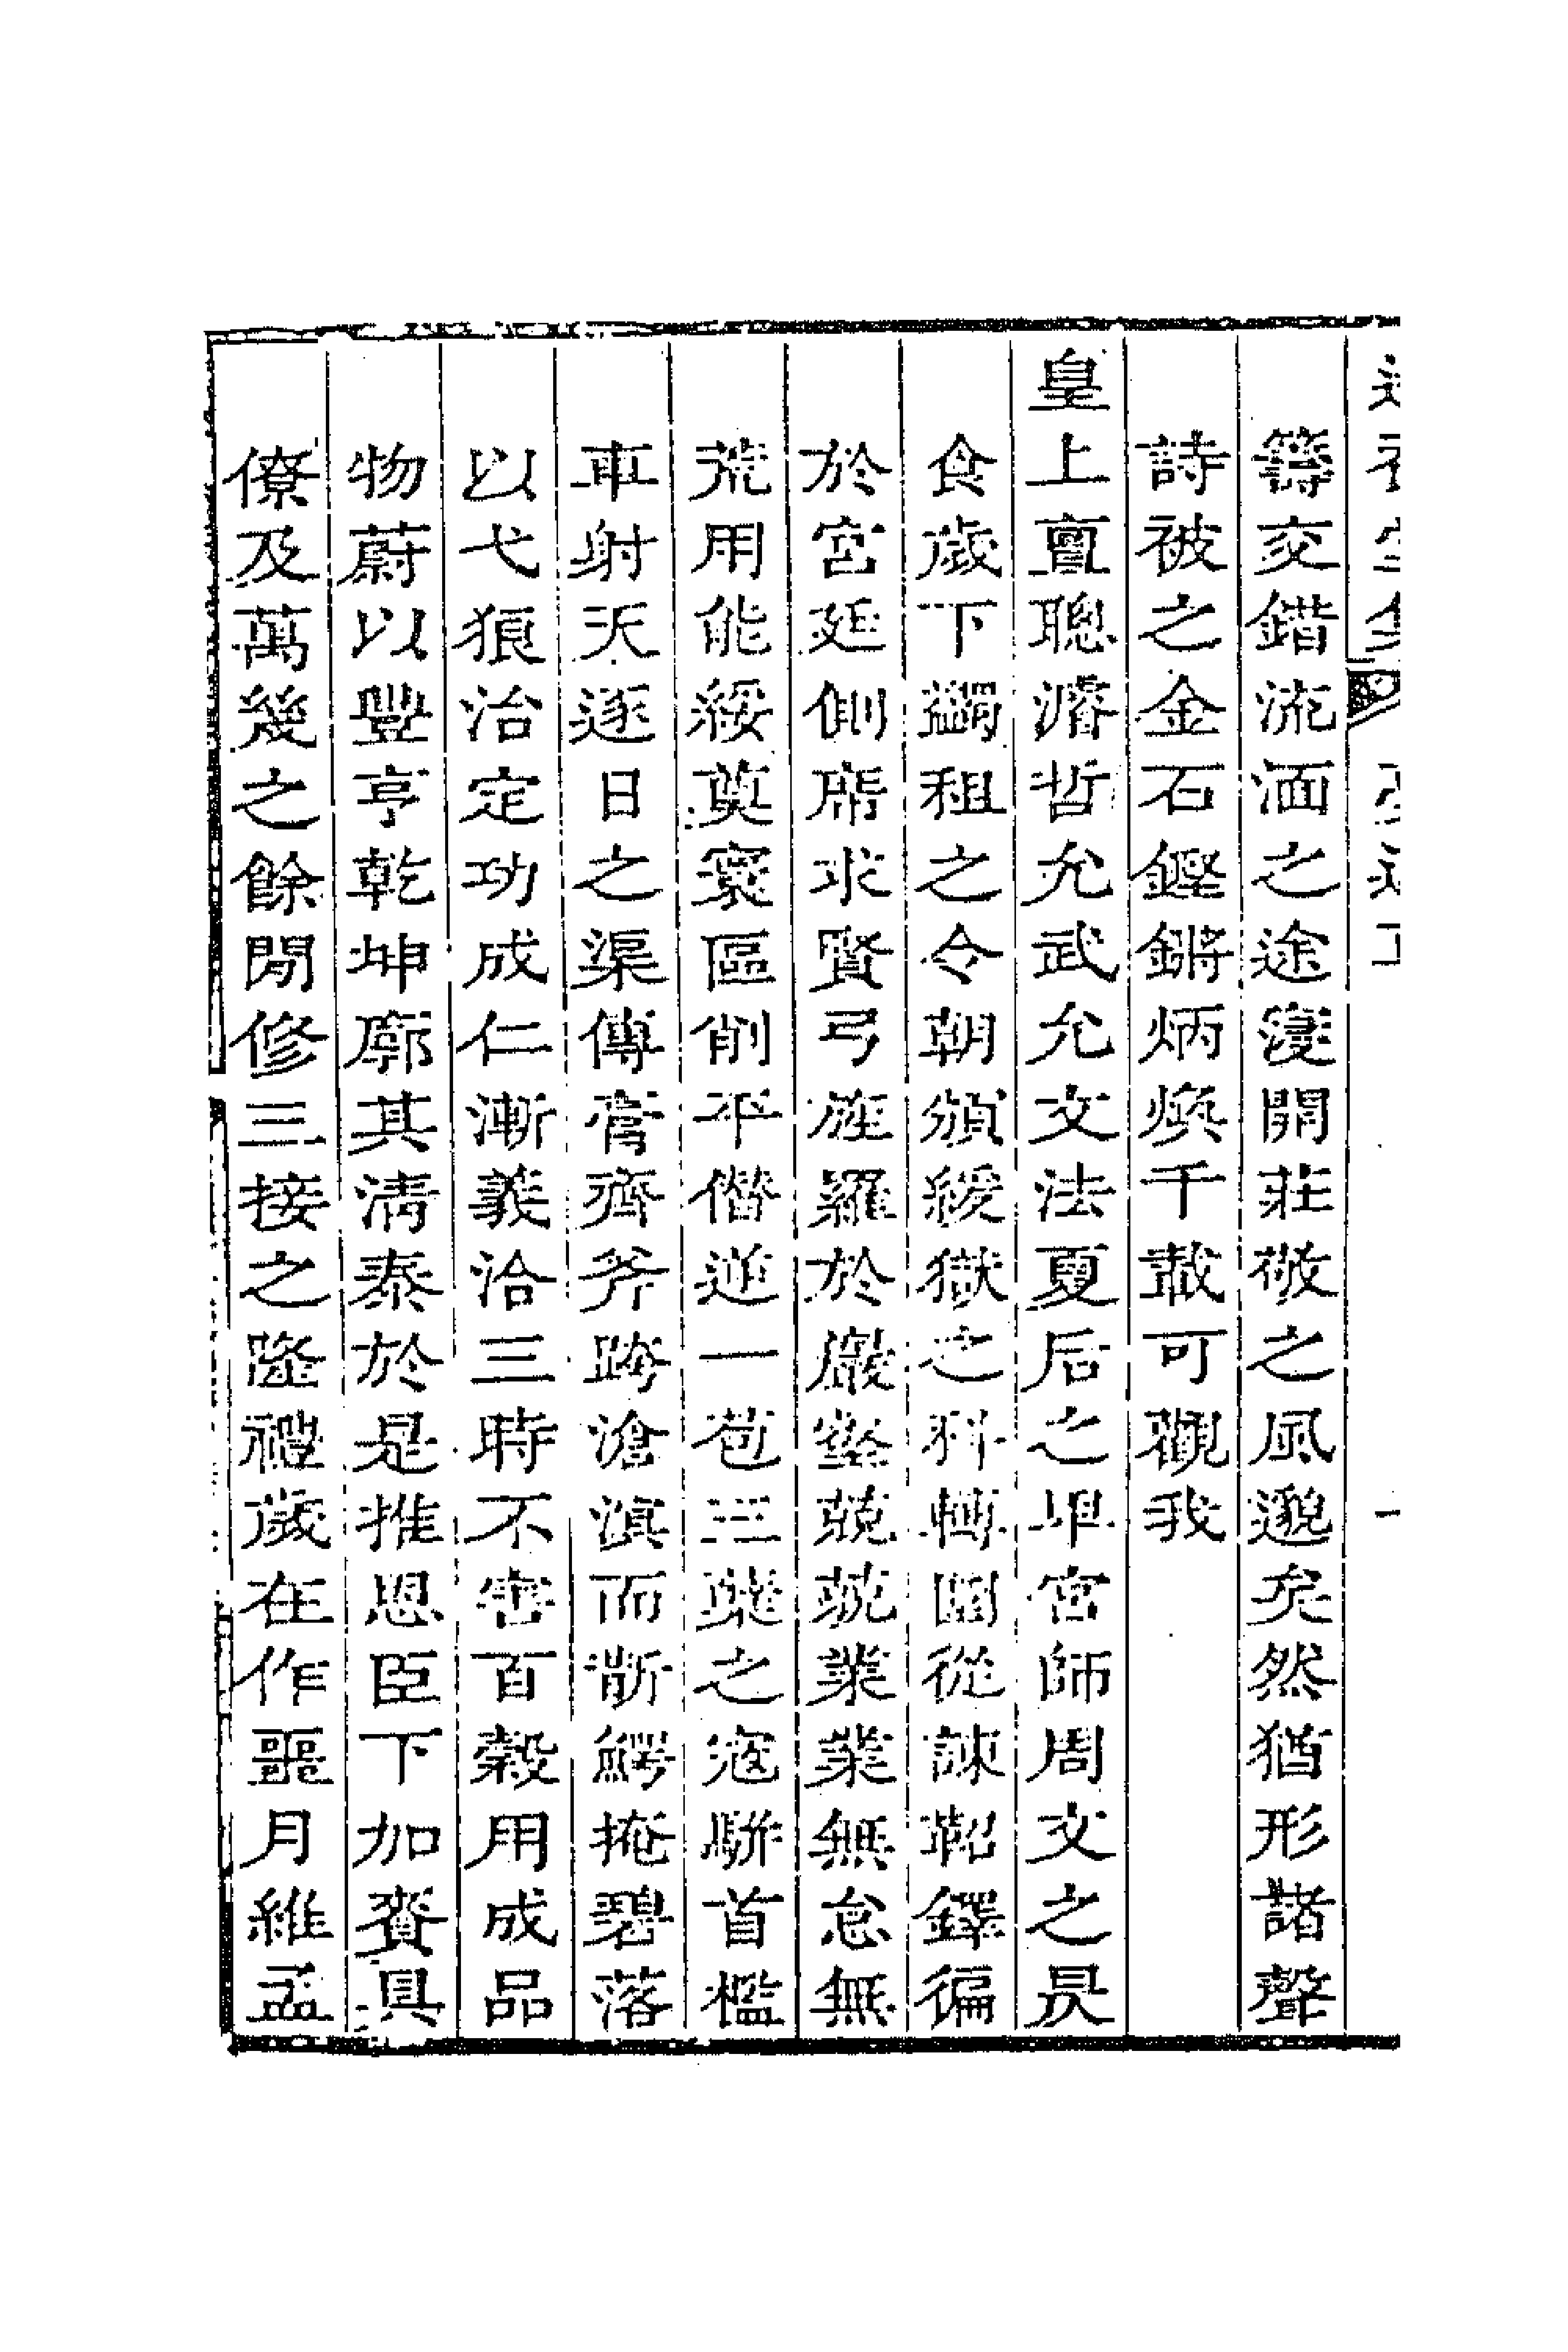 籌交錯流湎之途寖開莊敬之風邈矣然猶形諸聲
詩被之金石鏗鏘炳煥千載可觀我
皇上亶聰濬哲允武允文法夏后之卑宮師周文之昃
食歲下蠲租之令朝頒緩獄之科轉圜從諫鞀鐸徧
於宮廷側席求賢弓旌羅於巖壑兢兢業業無怠無
荒用能綏奠寰區削平僭逆一苞三蘖之寇駢首檻
車射天逐日之渠傳膏齊斧跨滄溟而斮鰐掩碧落
以弋狼治定功成仁漸義洽三時不害百穀用成品
物蔚以豐亨乾坤廓其清泰於是推恩臣下加賚具
僚及萬幾之餘閒修三接之隆禮歲在作噩月維孟